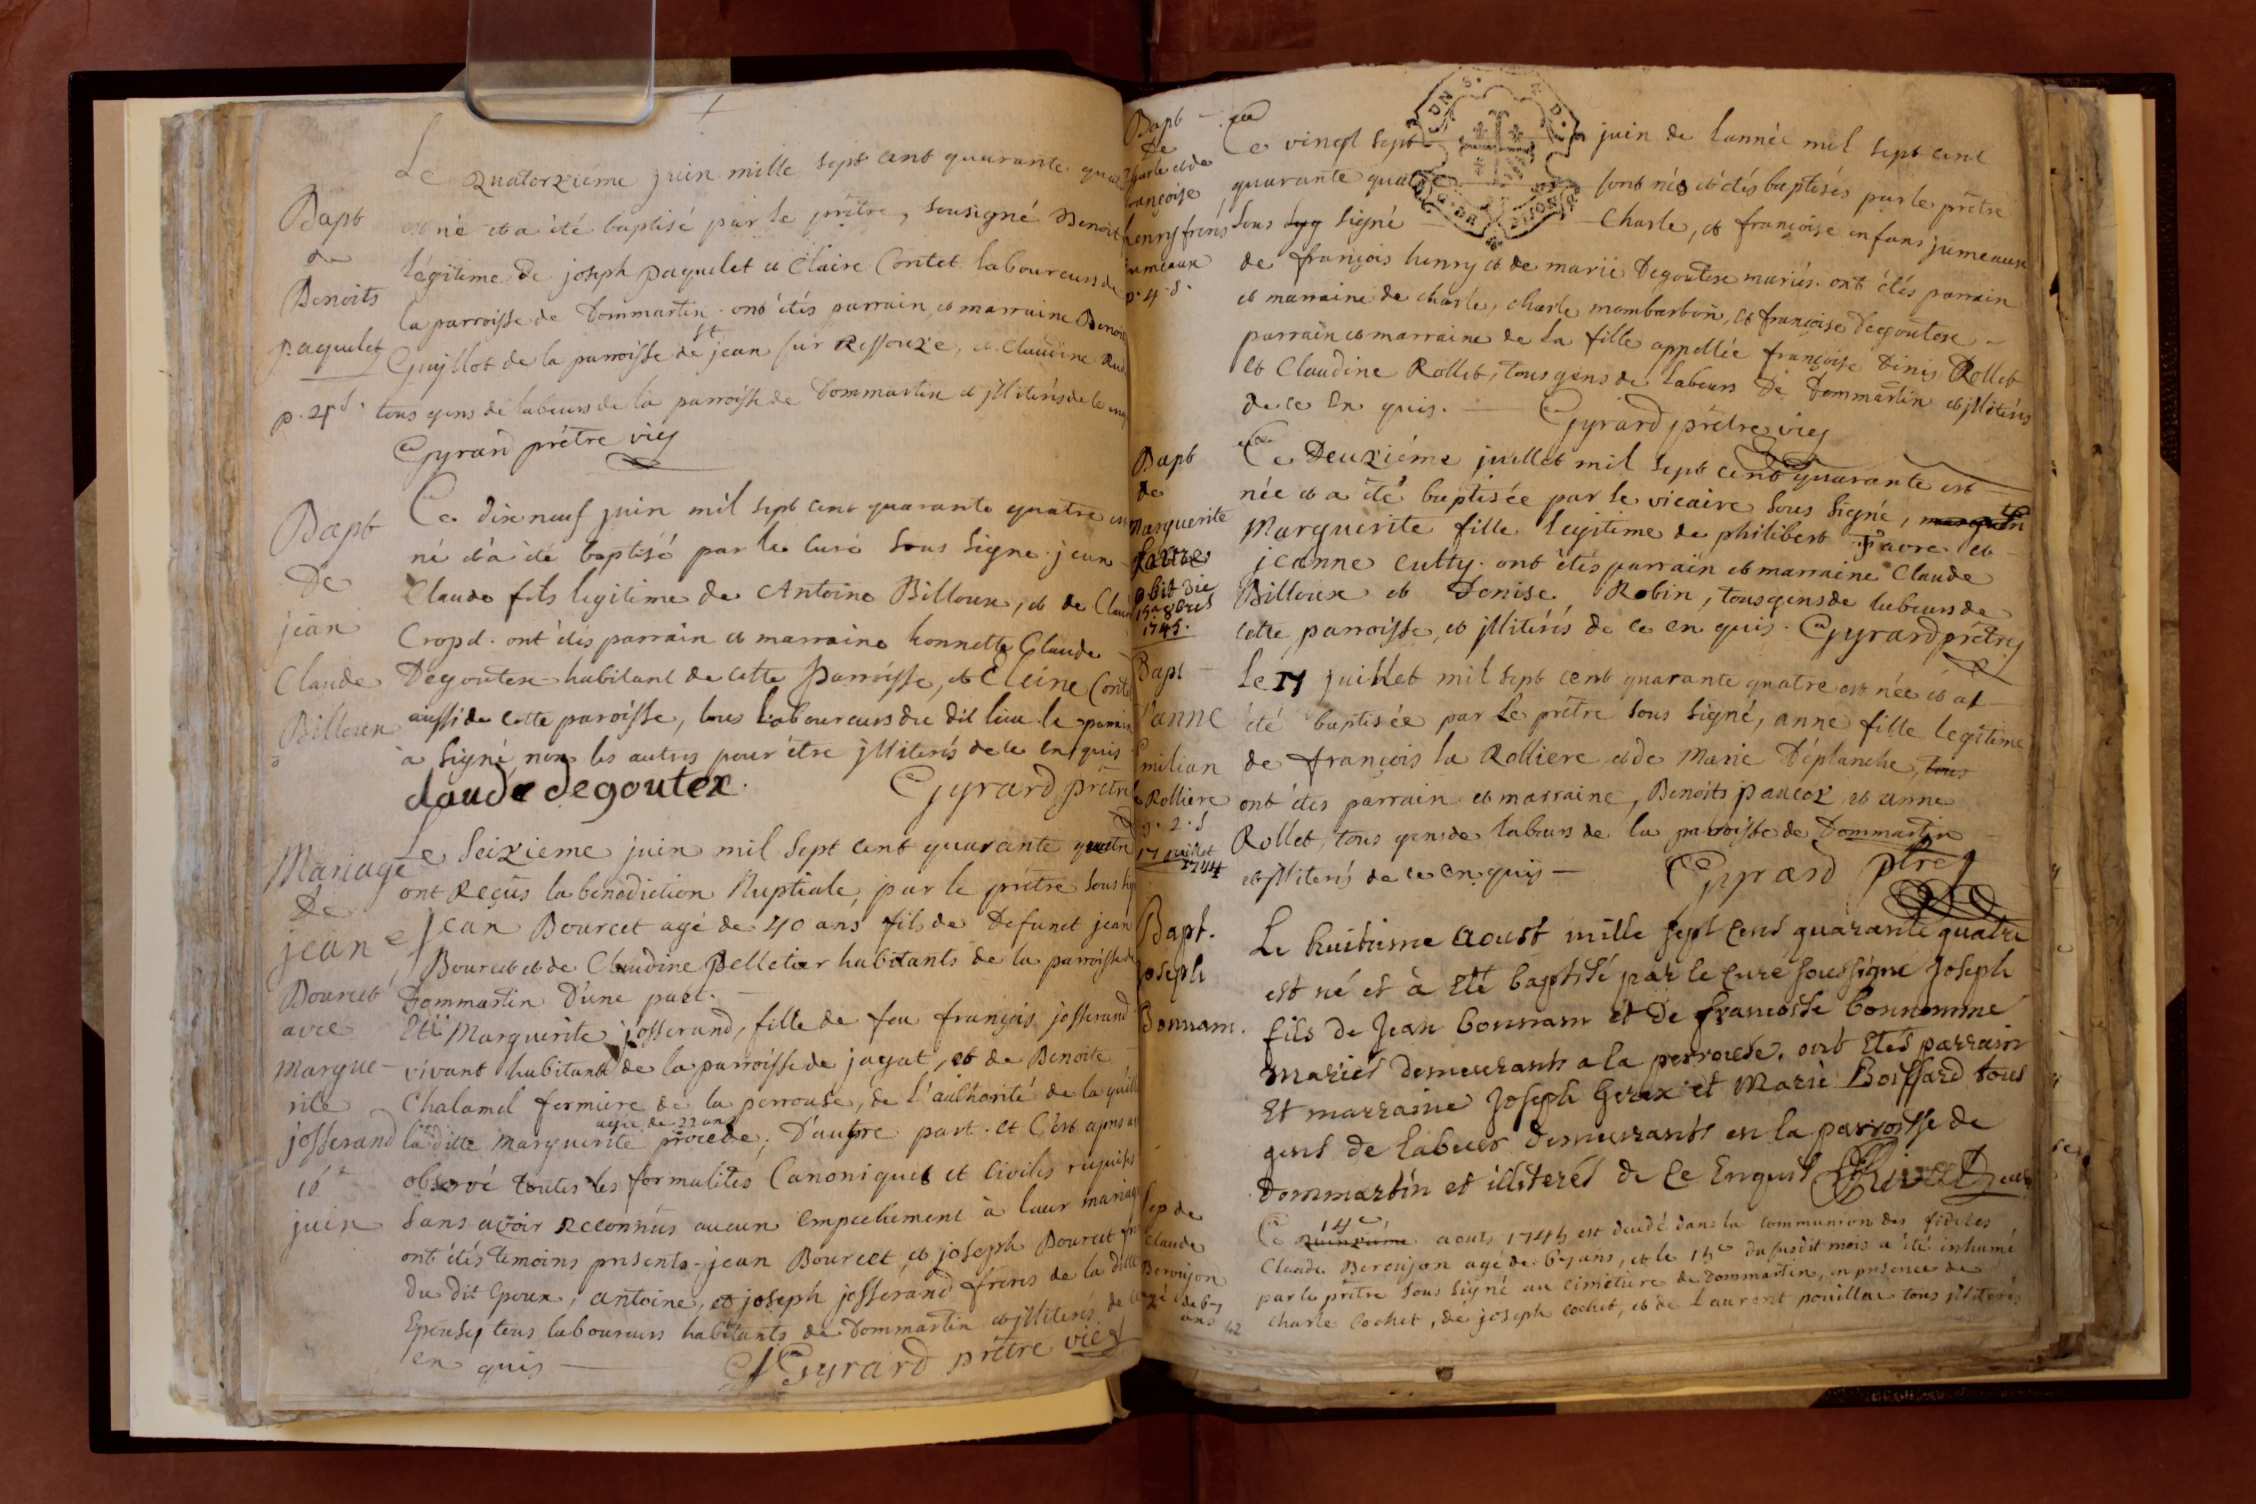 Bapt
de
Benoits
paquelet
p. 2 s.
Le quatorzieme juin mille sept cent quarante quat
est né et a été baptisé par le prêtre, sousigné Benoit
légitime de joseph paquelet et Claire Contet laboureurs de
la parroisse de Dommartin. ont étés parrain et marraine Benoit
Guyllot de la parroisse de St jean sur Ressouze, et Claudine
tous gens de labeurs de la parroisse de Dommartin et jlliterés de ce enq
Gyrard prêtre vic
Bapt
De
jean
Claude
Billoux
Ce dix neuf juin mil sept cent quarante quatre est
né et a été baptisé par le curé sous signe. jean
Claude fils legitime de Antoine Billoux, et de Clau
Cropd. ont étés parrain et marraine honnette Claude
Degoutex habitant de cette parroisse, et Cleine Cont
aussi de cette paroisse, tous laboureurs du dit lieu le parrain
à signé non les autres pour être jlliterés de ce enquis
claude degoutex.
Gyrard prêtre
Mariage
De
jean
Bourcet
avec
margue-
rite
josserand
16
juin
Le seizieme juin mil sept cent quarante quatre
ont Reçus la benediction Nuptiale, par le prêtre sous sig
jean Bourcet agé de 40 ans fils de Defunct jean
Bourcet et de Claudine Pelletier habitants de la parroisse de
Dommartin D'une part.
Et Marguerite josserand, fille de feu françois josserand
vivant habitant de la parroisse de jayat, et de Benoite
Chalamel fermiere de la perrouse, de L'authorité de la quelle
agée de 22 ans
la ditte marguerite procede, D'autre part. et C'est apres av
observé toutes les formalités Canoniques et Civiles requises
sans avoir reconnus aucun empechement à leur mariage
ont étés temoins presents jean Bourcet, et joseph Bourcet fr
du dit Epoux, antoine, et joseph josserand freres de la ditte
Epouse, tous laboureurs habitants de Dommartin et jlliterés de ce
en quis
Gyrard prêtre vic
Bapt
De
Charle et de
françoise
henry freres
jumeaux
p. 4. s.
Ce vingt sept juin de l'année mil sept cent
quarante quatre sont nés et étés baptisés par le prêtre
sous signé Charle, et françoise enfans jumeaux
de françois henry et de marie Degoutex mariés. ont étés parrain
et marraine de charle, charle mombarbon, et françoise Degoutex
parrain et marraine de la fille appellée françoise Dinis Rollet
et Claudine Rollet, tous gens de labeurs de Dommartin et jlliterés
de ce En quis.
Gyrard prêtre vic
Bapt
de
Marguerite
favre
obit die
15a 8bris
1745.
Ce Deuxiéme juillet mil sept cent quarante est
née et a été baptisée par le vicaire sous signé,
Marguerite fille legitime de philibert Favre et
jeanne cutty. ont étés parrain et marraine Claude
Billoux et Denise Robin, tous gens de labeurs de
cette parroisse, et jlliterés de ce en quis. Gyrard prêtre
Bapt
d'anne
Emilian
la Rolliere
p. 2. s
17 juillet
1744
Le 17 juillet mil sept cent quarante quatre est née et a
été baptisée par le prêtre sous signé, anne fille legitime
de françois la Rolliere et de Marie Déplanche, tous
ont étés parrain et marraine, Benoits paucoz et anne
Rollet, tous gens de labeurs de la parroisse de Dommartin
et jlliterés de ce en quis
Gyrard ptre
Bapt.
joseph
Bonnam.
Le huitieme aoust mille sept cent quarante quatre
est né et à été baptisé par le curé soussigné joseph
fils de jean bonnam et de francoise bonnomme
mariés demeurants a la perrouse. ont etés parrain
Et marraine joseph Gerex et Marie Boissard tous
gens de labeur demeurants en la parroisse de
dommartin et illiterés de ce Enquis
Sep de
Claude
Beroujon
agé de 67
ans
Ce 14e quinziéme aouts 1744 est decedé dans la communion des fideles
Claude Beroujon agé de 67 ans, et le 15e du susdit mois a été inhumé
par le prêtre sous signé au cimetiere de Dommartin, en presence de
charle Cochet, de joseph cochet, et de Laurent pouillat tous jlliterés